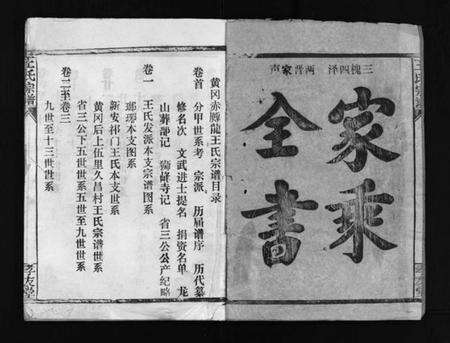 三槐四泽 两晋家声
家乘
全書
黄冈赤膊龍王氏宗谱目录
卷首 分甲世系考 宗派 历届谱序 历代
修名次 文武进士提名 捐资名单 龙
山葬 记 峰寺记 省三公公产纪略
卷一 王氏发派本支宗谱图系
本支图系
新安祁门王氏本支世系
黄冈后上伍里久昌村王氏宗谱世系
省三公下五世世系五世至九世世系
卷二至卷三
九世至十三世世系
王氏宗谱
孝友堂